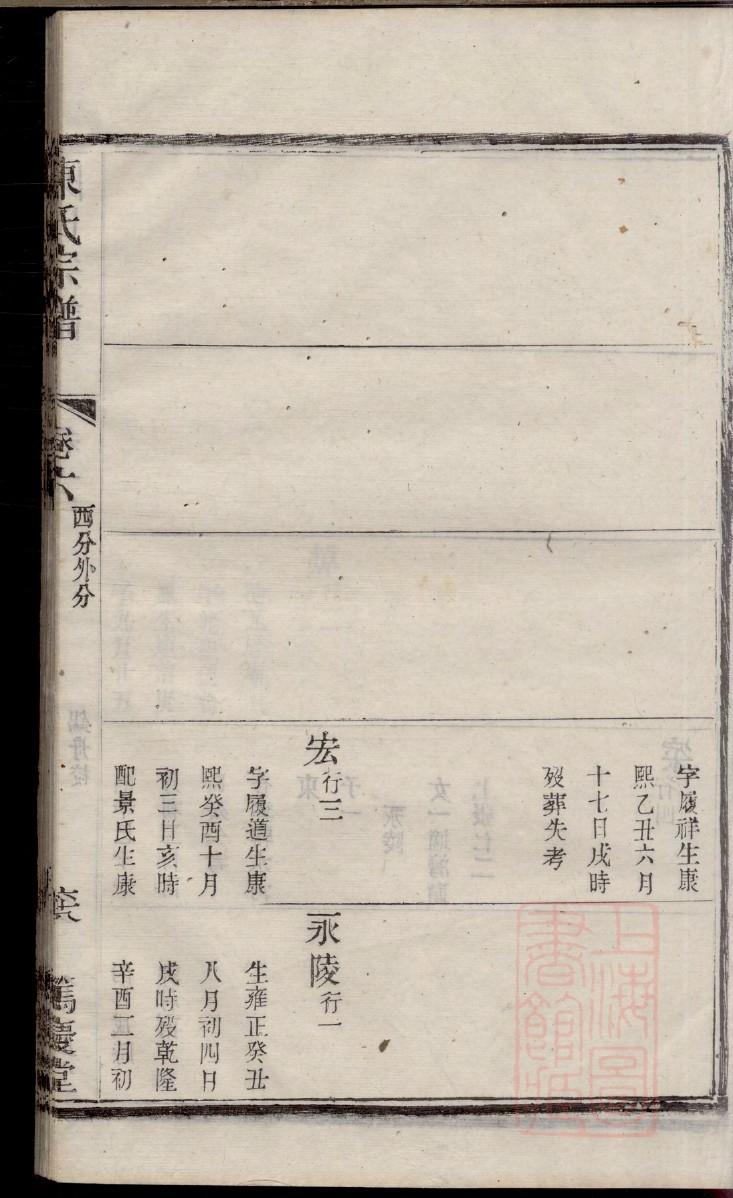 字履祥生康
熙乙丑六月
十七日戌時
歿葬失考
宏行三
字履道生康
熙癸酉十月
初三日亥時
配景氏生康
永陵行一
生雍正癸丑
八月初四日
戌時歿乾隆
辛酉正月初
陳氏宗譜
卷六
西分外分
篤慶堂
上海圖
書館藏